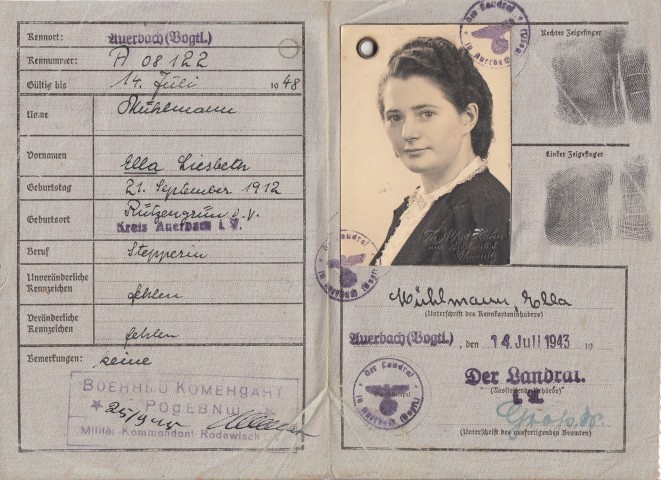 Kennort: Auerbach (Vogtl.)
Kennnummer: A 08122
Gültig bis 14. Juli 1948
Name Mühlmann
Vornamen Ella Liesbeth
Geburtstag 21. September 1912
Geburtsort Rützengrün i. V.
Kreis Auerbach i. V.
Beruf Stepperin
Unveränderliche
Kennzeichen fehlen
Veränderliche
Kennzeichen fehlen
Bemerkungen: keine
Militär-Kommandant Rodewisch
25/9 45
Der Landrat
in Auerbach (Vogtl.)
Rechter Zeigefinger
Linker Zeigefinger
Der Landrat
in Auerbach (Vogtl.)
Mühlmann, Ella
(Unterschrift des Kennkarteninhabers)
Auerbach (Vogtl.), den 14. Juli 1943 19
Der Landrat
in Auerbach (Vogtl.)
Der Landrat.
(Ausstellende Behörde)
(Unterschrift des ausfertigenden Beamten)